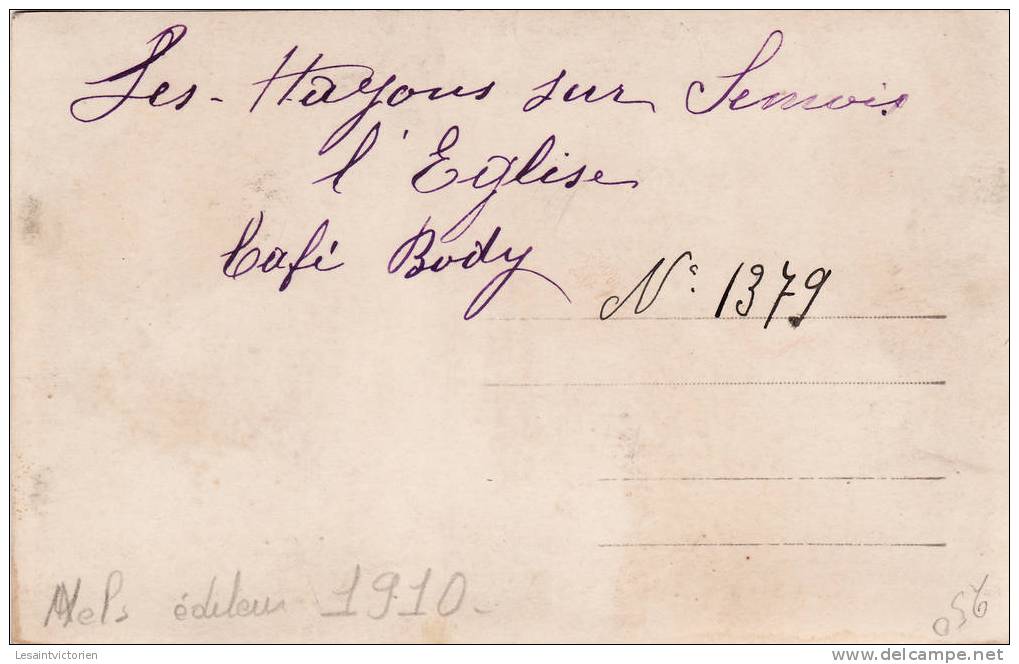 Les-Hayons sur Semois
l'Eglise
Café Body
N° 1379
Nels éditeur 1910-
950
Lesaintvictorien
www.delcampe.net